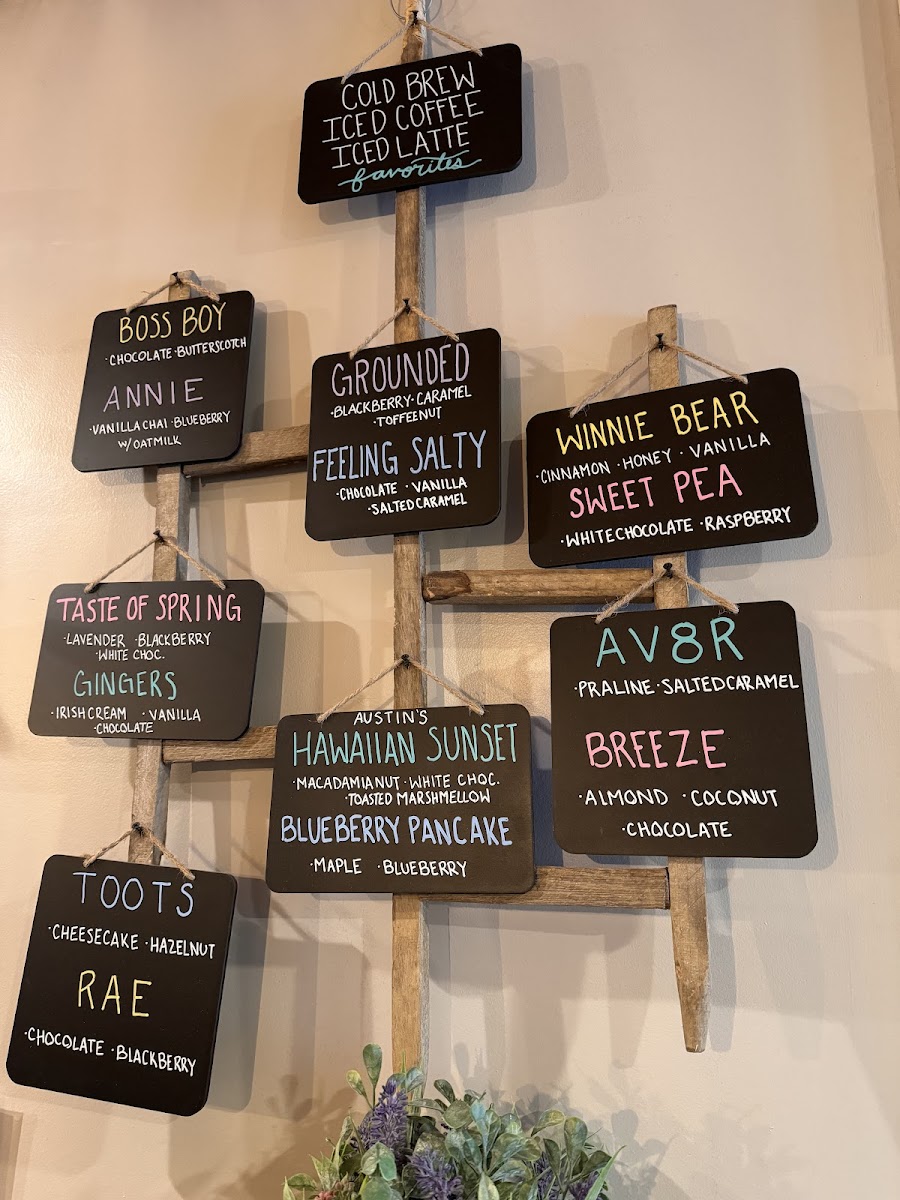 COLD BREW
ICED COFFEE
ICED LATTE
favorites
BOSS BOY
·CHOCOLATE ·BUTTERSCOTCH
ANNIE
·VANILLA CHAI ·BLUEBERRY
W/ OATMILK
GROUNDED
·BLACKBERRY ·CARAMEL
·TOFFEENUT
FEELING SALTY
·CHOCOLATE ·VANILLA
·SALTED CARAMEL
WINNIE BEAR
·CINNAMON ·HONEY ·VANILLA
SWEET PEA
·WHITE CHOCOLATE ·RASPBERRY
TASTE OF SPRING
·LAVENDER ·BLACKBERRY
·WHITE CHOC.
GINGERS
·IRISH CREAM ·VANILLA
·CHOCOLATE
AUSTIN'S
HAWAIIAN SUNSET
·MACADAMIA NUT ·WHITE CHOC.
·TOASTED MARSHMELLOW
BLUEBERRY PANCAKE
·MAPLE ·BLUEBERRY
AV8R
·PRALINE ·SALTED CARAMEL
BREEZE
·ALMOND ·COCONUT
·CHOCOLATE
TOOTS
·CHEESECAKE ·HAZELNUT
RAE
·CHOCOLATE ·BLACKBERRY